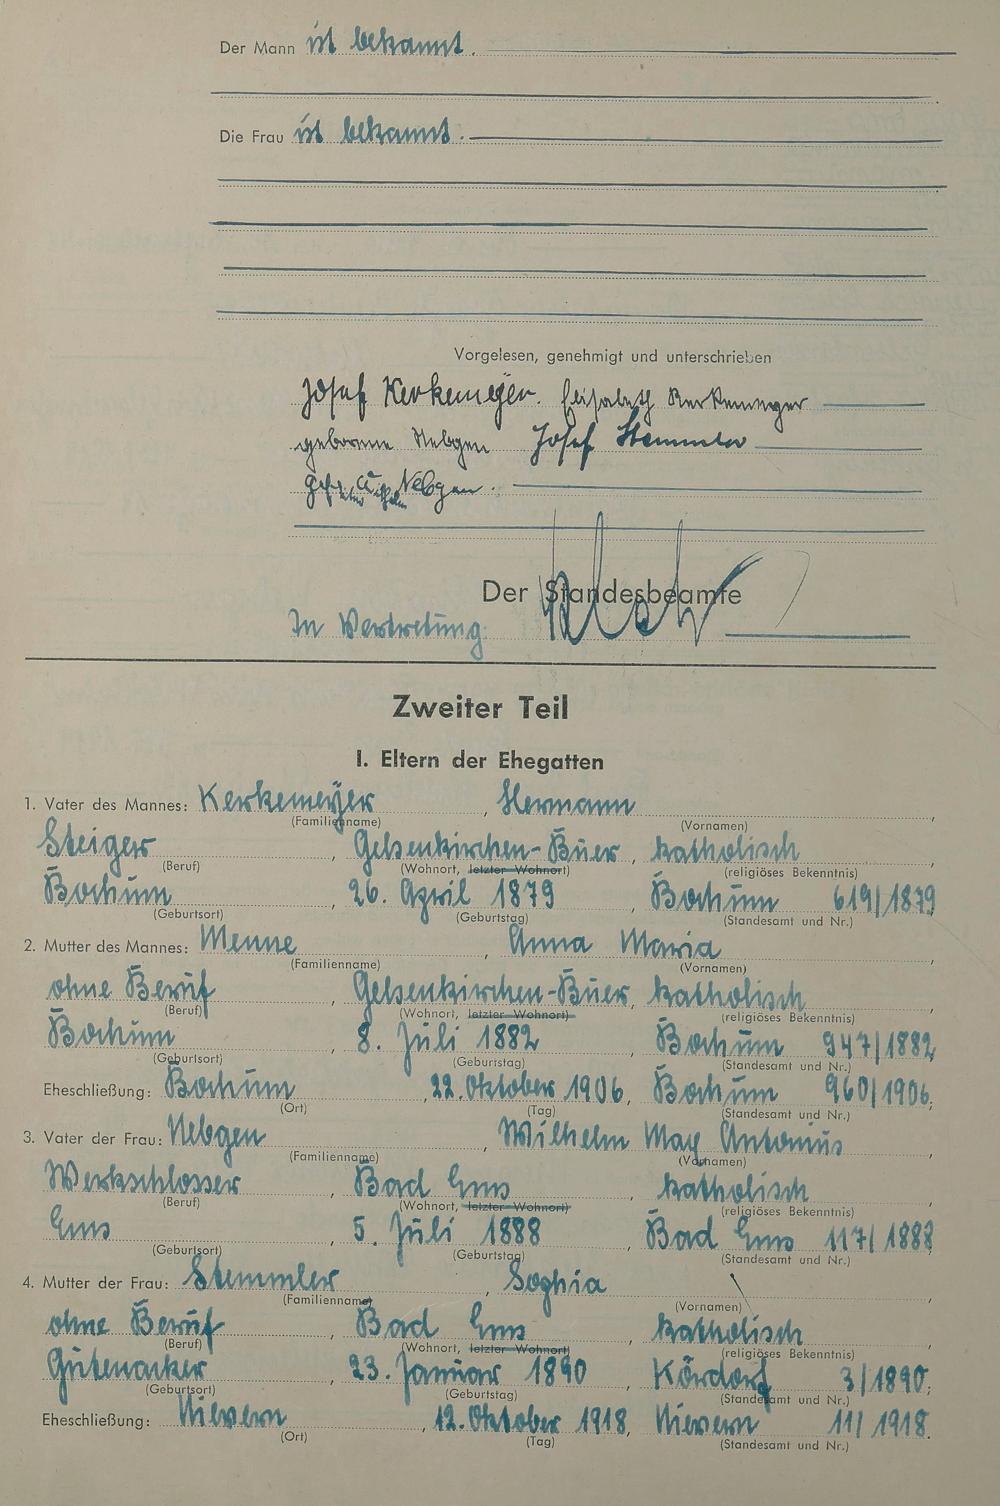 Der Mann ist bekannt.
Die Frau ist bekannt.
Vorgelesen, genehmigt und unterschrieben
Josef Kerkemeyer. Elisabeth Kerkemeyer
geborene Nebgen Josef Stemmler
Wilhelm Nebgen.
Der Standesbeamte
In Vertretung:
Zweiter Teil
I. Eltern der Ehegatten
1. Vater des Mannes: Kerkemeyer, Hermann,
(Familienname) (Vornamen)
Steiger, Gelsenkirchen-Buer, katholisch,
(Beruf) (Wohnort, letzter Wohnort) (religiöses Bekenntnis)
Bochum, 26. April 1879, Bochum 619/1879
(Geburtsort) (Geburtstag) (Standesamt und Nr.)
2. Mutter des Mannes: Menne, Anna Maria,
(Familienname) (Vornamen)
ohne Beruf, Gelsenkirchen-Buer, katholisch,
(Beruf) (Wohnort, letzter Wohnort) (religiöses Bekenntnis)
Bochum, 8. Juli 1882, Bochum 947/1882,
(Geburtsort) (Geburtstag) (Standesamt und Nr.)
Eheschließung: Bochum, 22. Oktober 1906, Bochum 960/1906;
(Ort) (Tag) (Standesamt und Nr.)
3. Vater der Frau: Nebgen, Wilhelm May Antonius,
(Familienname) (Vornamen)
Werkschlosser, Bad Ems, katholisch,
(Beruf) (Wohnort, letzter Wohnort) (religiöses Bekenntnis)
Ems, 5. Juli 1888, Bad Ems 117/1888,
(Geburtsort) (Geburtstag) (Standesamt und Nr.)
4. Mutter der Frau: Stemmler, Sophia,
(Familienname) (Vornamen)
ohne Beruf, Bad Ems, katholisch,
(Beruf) (Wohnort, letzter Wohnort) (religiöses Bekenntnis)
Gutenacker, 23. Januar 1890, Kördorf 3/1890;
(Geburtsort) (Geburtstag) (Standesamt und Nr.)
Eheschließung: Nievern, 12. Oktober 1918, Nievern 11/1918.
(Ort) (Tag) (Standesamt und Nr.)